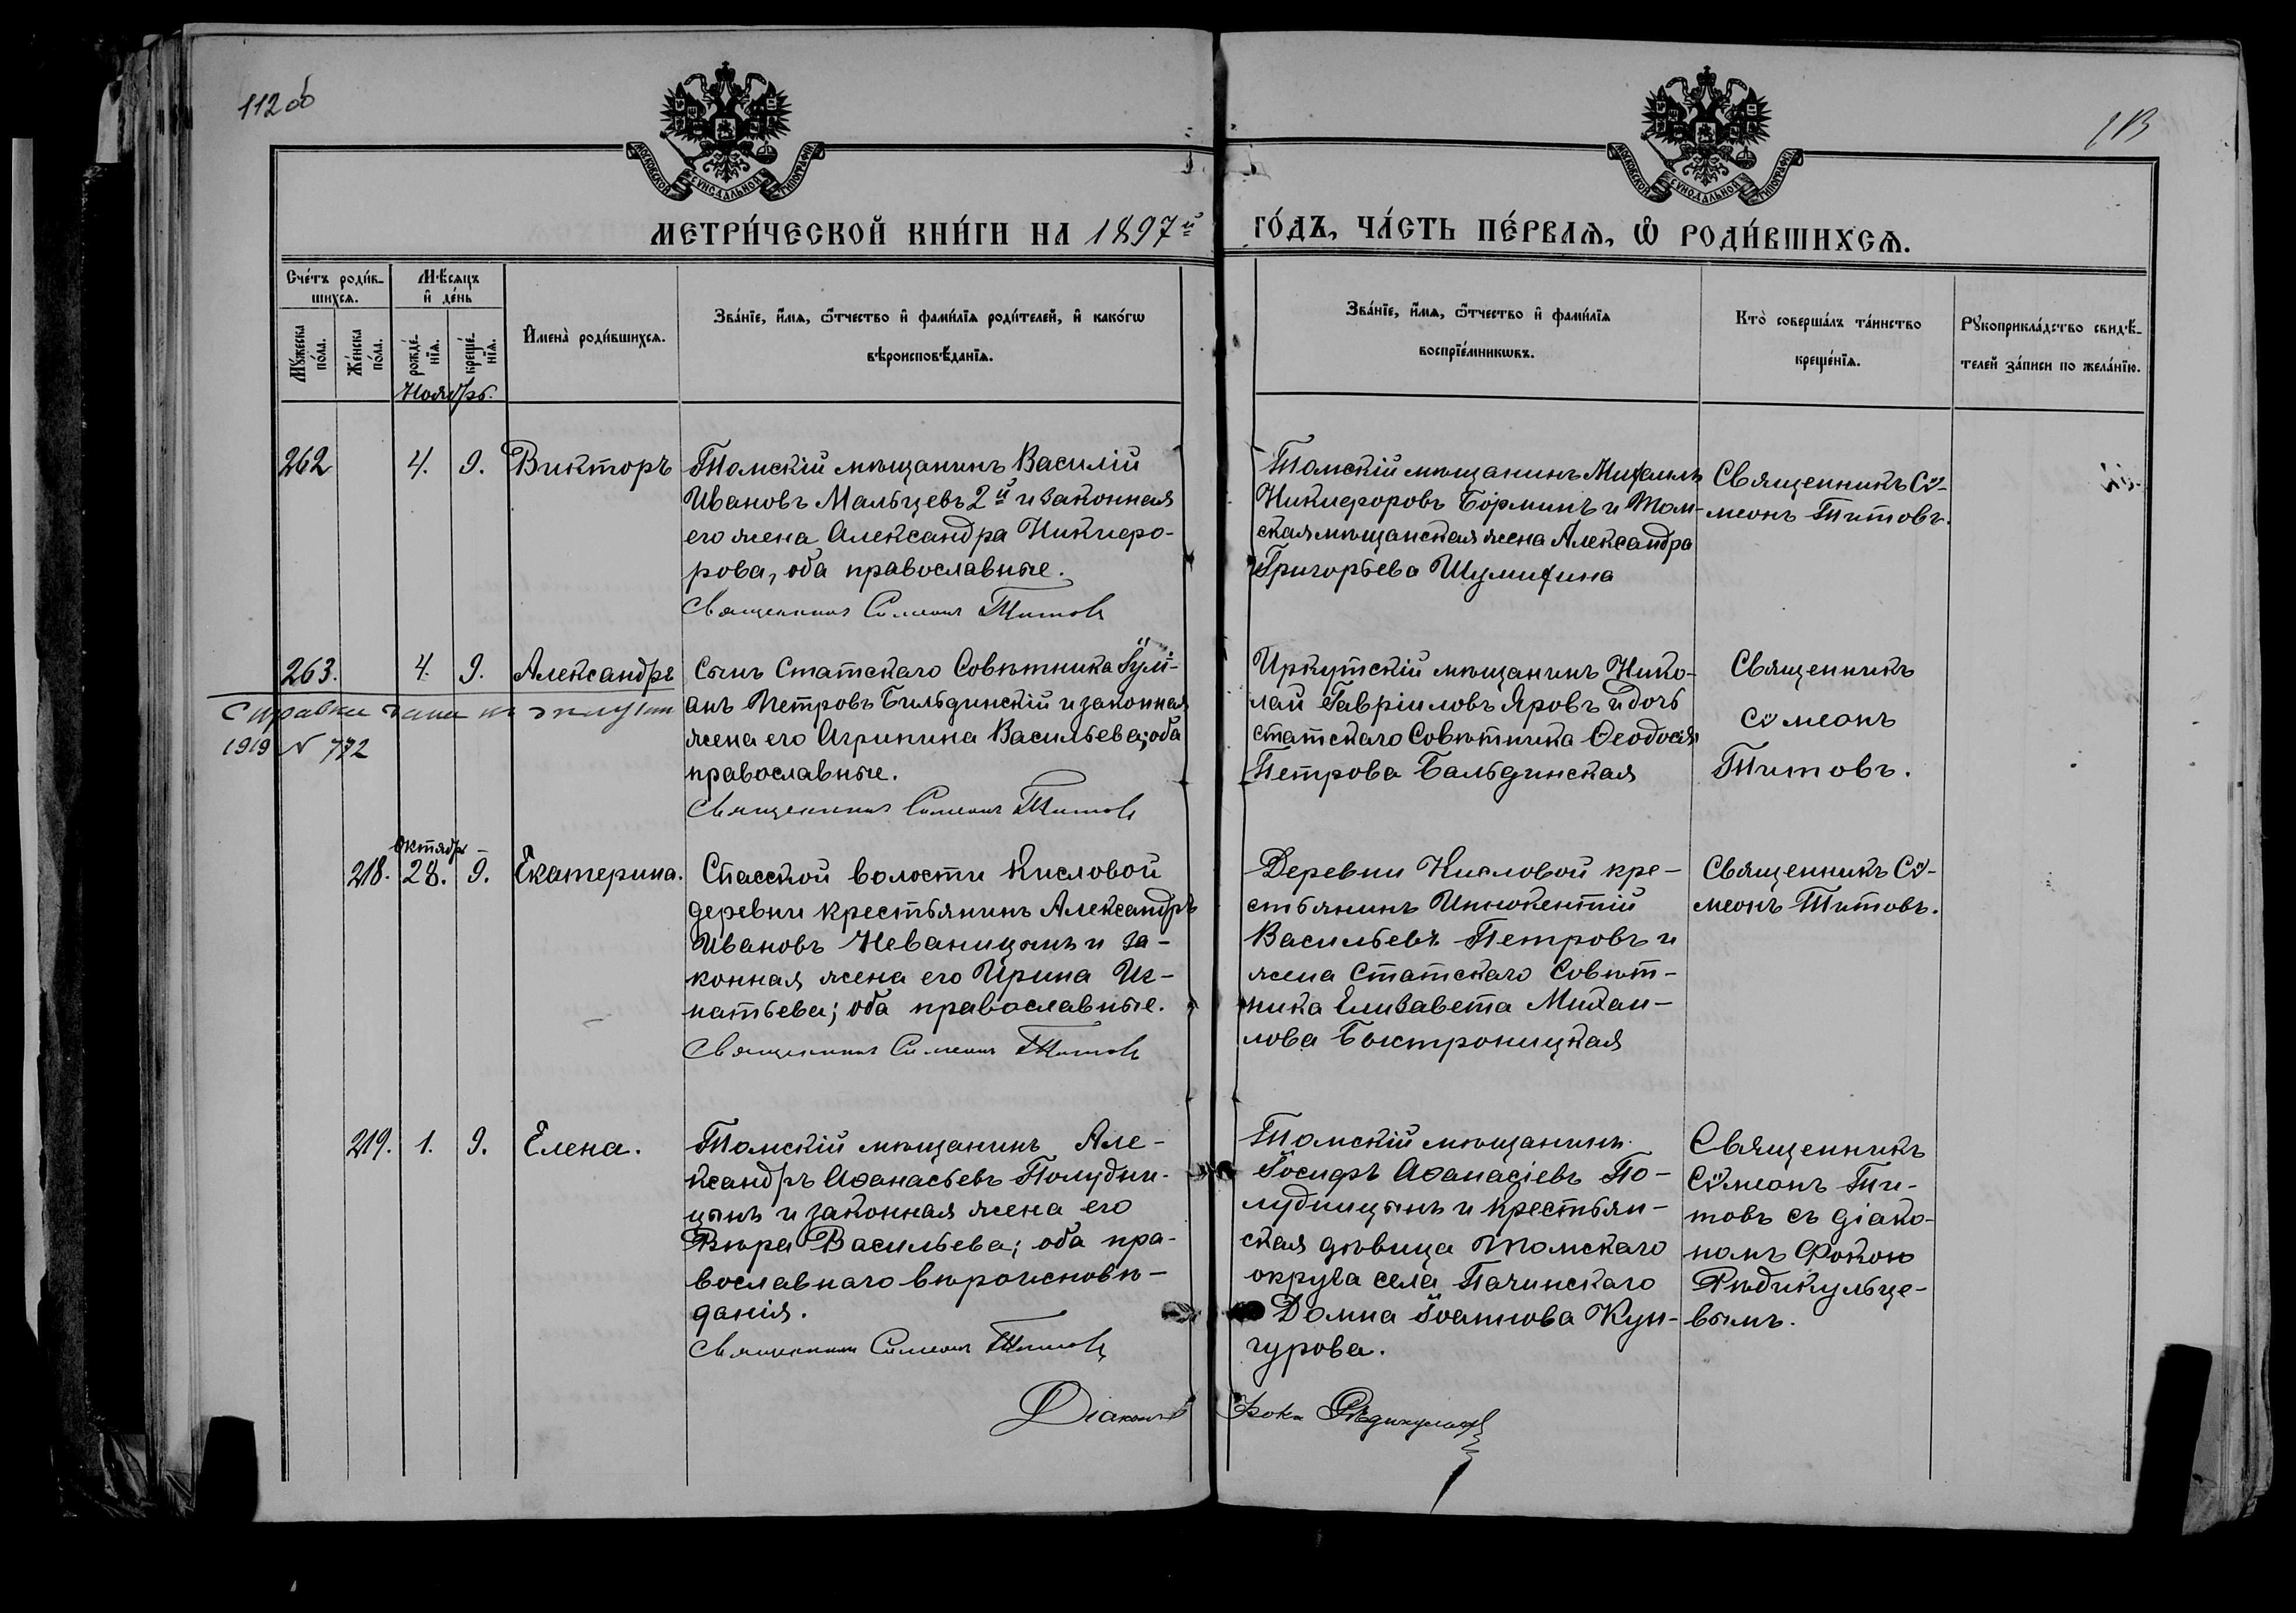 112 об
113
МОСКОВСКОЙ СѴНОДАЛЬНОЙ ТИПОГРАФІИ
МОСКОВСКОЙ СѴНОДАЛЬНОЙ ТИПОГРАФІИ
МЕТРИ́ЧЕСКОЙ КНИ́ГИ НА 1897й ГО́ДЪ, ЧА́СТЬ ПЕ́РВАѦ, Ѡ҆ РОДИ́ВШИХСѦ.
Сче́тъ роди́в-
шихсѧ.
Мѣ́сѧцъ
и҆ де́нь
Мꙋ́жеска
по́ла.
Же́нска
по́ла.
рожде́-
нїѧ.
креще́-
нїѧ.
Ноябрь.
И҆мена̀ роди́вшихсѧ.
Зва́нїе, и҆́мѧ, ѻ҆́тчество и҆ фами́лїѧ роди́телей, и҆ како́гѡ
вѣроисповѣ́данїѧ.
Зва́нїе, и҆́мѧ, ѻ҆́тчество и҆ фами́лїѧ
воспрїе́мникѡвъ.
Кто̀ соверша́лъ та́инство
креще́нїѧ.
Рꙋкоприкла́дство свидѣ́-
телей за́писи по жела́нїю.
262 4. 9. Викторъ
Томскій мѣщанинъ Василій
Ивановъ Мальцевъ 2й и законная
его жена Александра Никифо-
рова, оба православные.
Священникъ Симеонъ Титовъ
Томскій мѣщанинъ Михаилъ
Никифоровъ Борминъ и Том-
ская мѣщанская жена Александра
Григорьева Шумихина
Священникъ Сѵ-
меонъ Титовъ.
263. 4. 9. Александръ
Справка дана
1919 N 772
Сынъ Статскаго Совѣтника Іулі-
анъ Петровъ Бильдинскій и законная
жена его Агрипина Васильева; оба
православные.
Священникъ Симеонъ Титовъ
Иркутскій мѣщанинъ Нико-
лай Гавріиловъ Яровъ и дочь
статскаго Совѣтника Ѳеодосія
Петрова Бальдинская
Священникъ
Сѵмеонъ
Титовъ.
Октябрь
218. 28. 9. Екатерина.
Спасской волости Кисловой
деревни крестьянинъ Александръ
Ивановъ Неваницынъ и за-
конная жена его Ирина Иг-
натьева; оба православные.
Священникъ Симеонъ Титовъ
Деревни Кисловой кре-
стьянинъ Иннокентій
Васильевъ Петровъ и
жена Статскаго Совѣт-
ника Елизавета Михаи-
лова Быстроницкая
Священникъ Сѵ-
меонъ Титовъ.
219. 1. 9. Елена.
Томскій мѣщанинъ Але-
ксандръ Аѳанасьевъ Полудни-
цынъ и законная жена его
Вѣра Васильева; оба пра-
вославнаго вѣроисповѣ-
данія.
Священникъ Симеонъ Титовъ
Томскій мѣщанинъ
Іосифъ Аѳанасіевъ По-
лудницынъ и крестьян-
ская дѣвица Томскаго
округа села Пачинскаго
Домна Іоаннова Кун-
гурова.
Священникъ
Сѵмеонъ Ти-
товъ съ діако-
номъ Фокою
Рѣдикульце-
вымъ.
Діаконъ Фока Рѣдикульцевъ